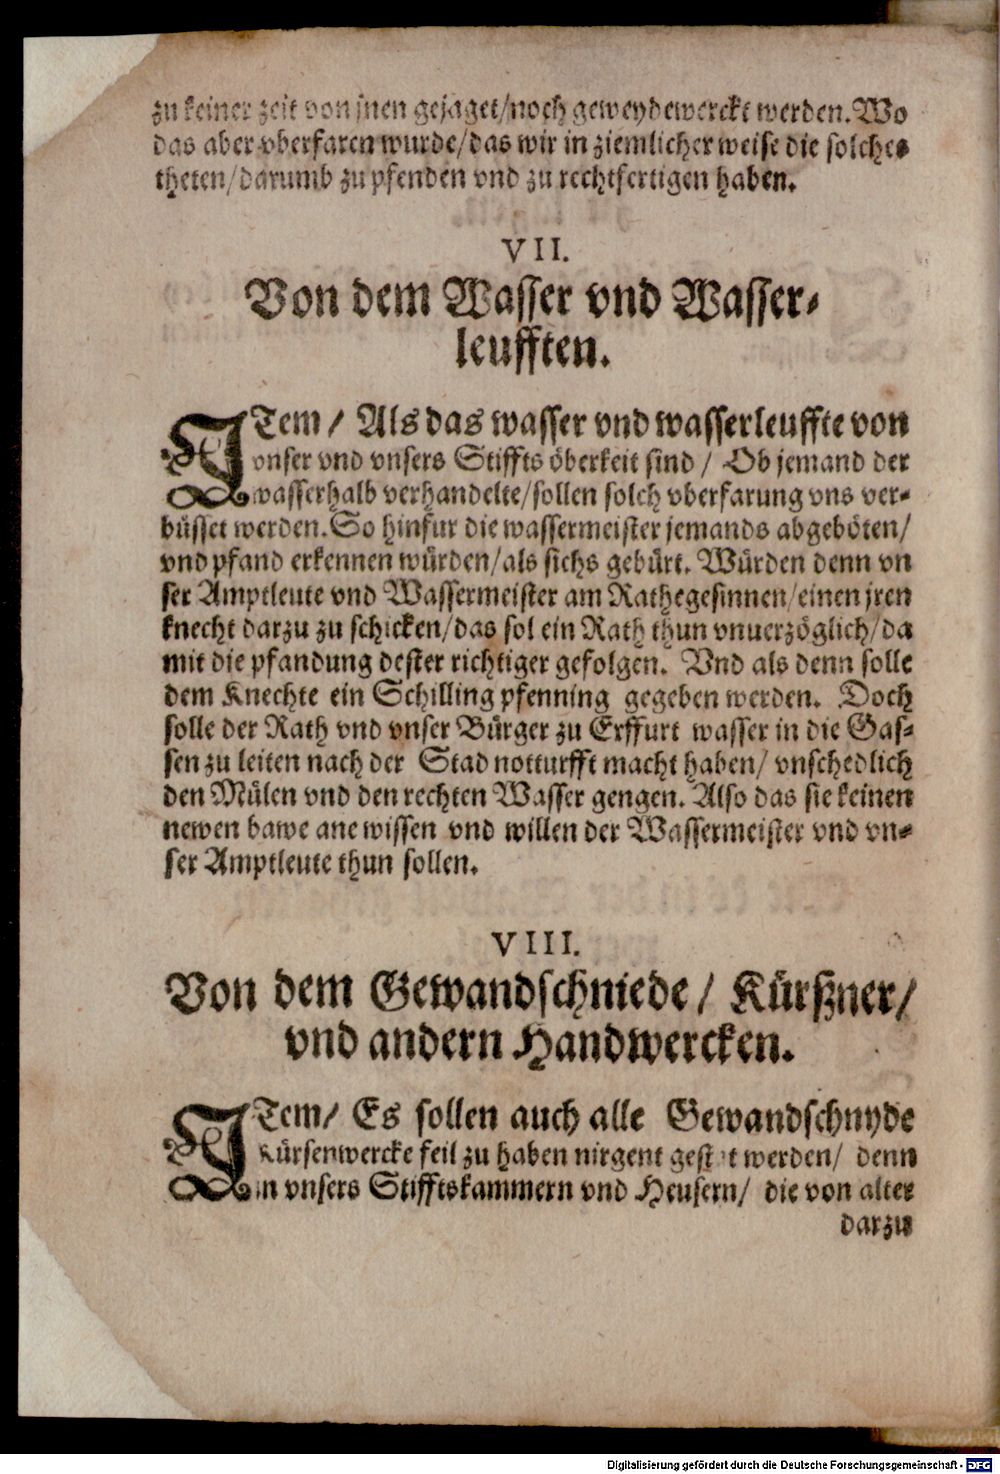 zu keiner zeit von jnen gejaget/noch geweydewerckt werden. Wo
das aber vberfaren wurde/das wir in ziemlicher weise die solches
theten/darumb zu pfenden vnd zu rechtfertigen haben.
VII.
Von dem Wasser vnd Wasser-
leufften.
ITem/ Als das wasser vnd wasserleuffte von
vnser vnd vnsers Stiffts öberkeit sind/ Ob jemand der
wasserhalb verhandelte/sollen solch vberfarung vns ver-
büsset werden. So hinfur die wassermeister jemands abgeböten/
vnd pfand erkennen würden/als sichs gebürt. Würden denn vn
ser Amptleute vnd Wassermeister am Rathe gesinnen/einen jren
knecht darzu zu schicken/das sol ein Rath thun vnuerzöglich/da
mit die pfandung dester richtiger gefolgen. Vnd als denn solle
dem Knechte ein Schilling pfenning gegeben werden. Doch
solle der Rath vnd vnser Bürger zu Erffurt wasser in die Gas-
sen zu leiten nach der Stad notturfft macht haben/ vnschedlich
den Mülen vnd den rechten Wasser gengen. Also das sie keinen
newen bawe ane wissen vnd willen der Wassermeister vnd vn-
ser Amptleute thun sollen.
VIII.
Von dem Gewandschniede/ Kürßner/
vnd andern Handwercken.
ITem/ Es sollen auch alle Gewandschnyde
Kürsenwercke feil zu haben nirgent werden/ denn
in vnsers Stifftskammern vnd Heusern/ die von alter
darzu
Digitalisierung gefördert durch die Deutsche Forschungsgemeinschaft - DFG